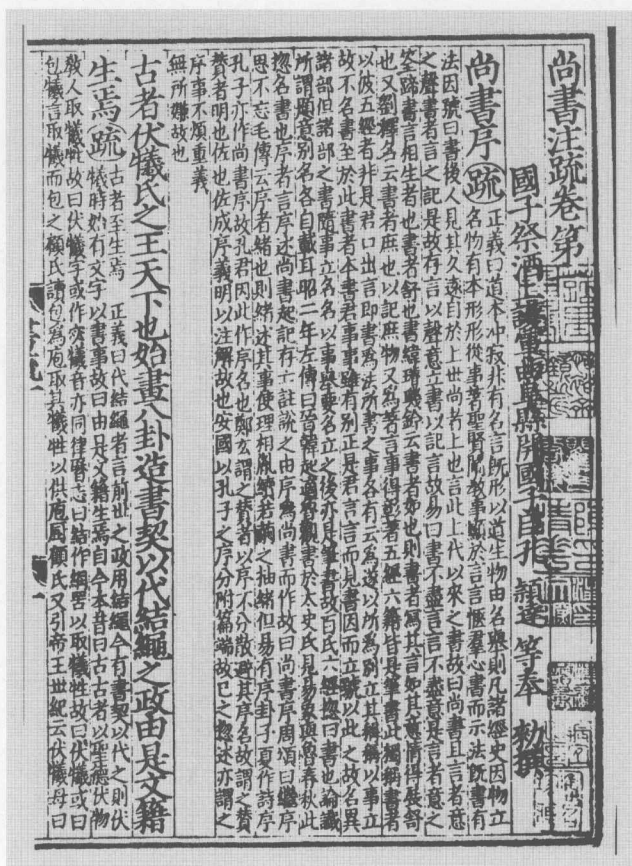 尚書注疏卷第
國子祭酒上護軍曲阜縣開國子臣孔 穎達 等奉 勅撰
尚書序 疏 正義曰道本冲寂非有名言旣形以道生物由名舉則凡諸經史因物立
名物有本形形從事著聖賢闡教事顯於言言愜羣心書而示法旣書有
法因號曰書後人見其久遠自於上世尚者上也言此上代以來之書故曰尚書且言者意
之聲書者言之記是故存言以聲意立書以記言故易曰書不盡言言不盡意是言者意之
筌蹄書言相生者也書者舒也書緯璿璣鈐云書者如也則書者寫其言如其意情得展舒
也又劉熙釋名云書者庶也以記庶物又為著言事得彰著五經六籍皆是筆書此獨稱書者
以彼五經者非是君口出言即書為法所書之事各有云為遂以所為別立其稱稱以事立
故不名書至於此書者本書君事事雖有別正是君言言而見書因而立號以此之故名異
諸部但諸部之書隨事立名名以事舉要名立之後亦是筆書故百氏六經揔曰書也論讖
所謂題意別名各自載耳昭二年左傳曰晉韓起適魯觀書於太史氏見易象與魯春秋此
揔名書也序者言序述尚書起記存亡註說之由序為尚書而作故曰尚書序周頌曰繼序
思不忘毛傳云序者緒也則緒述其事使理相胤續若繭之抽緒但易有序卦子夏作詩序
孔子亦作尚書序故孔君因此作序名也鄭玄謂之贊者以序不分散避其序名故謂之贊
贊者明也佐也佐成序義明以注解故也安國以孔子之序分附篇端故已之揔述亦謂之
序事不煩重義
無所嫌故也
古者伏犧氏之王天下也始畫八卦造書契以代結繩之政由是文籍
生焉 疏 古者至生焉 正義曰代結繩者言前世之政用結繩今有書契以代之則伏
犧時始有文字以書事故曰由是文籍生焉自今本昔曰古古者以聖德伏物
教人取犧牲故曰伏犧字或作宓犧音亦同律曆志曰結作網罟以取犧牲故曰伏犧或曰
包犧言取犧而包之顧氏讀包為庖取其犧牲以供庖厨顧氏又引帝王世紀云伏犧母曰